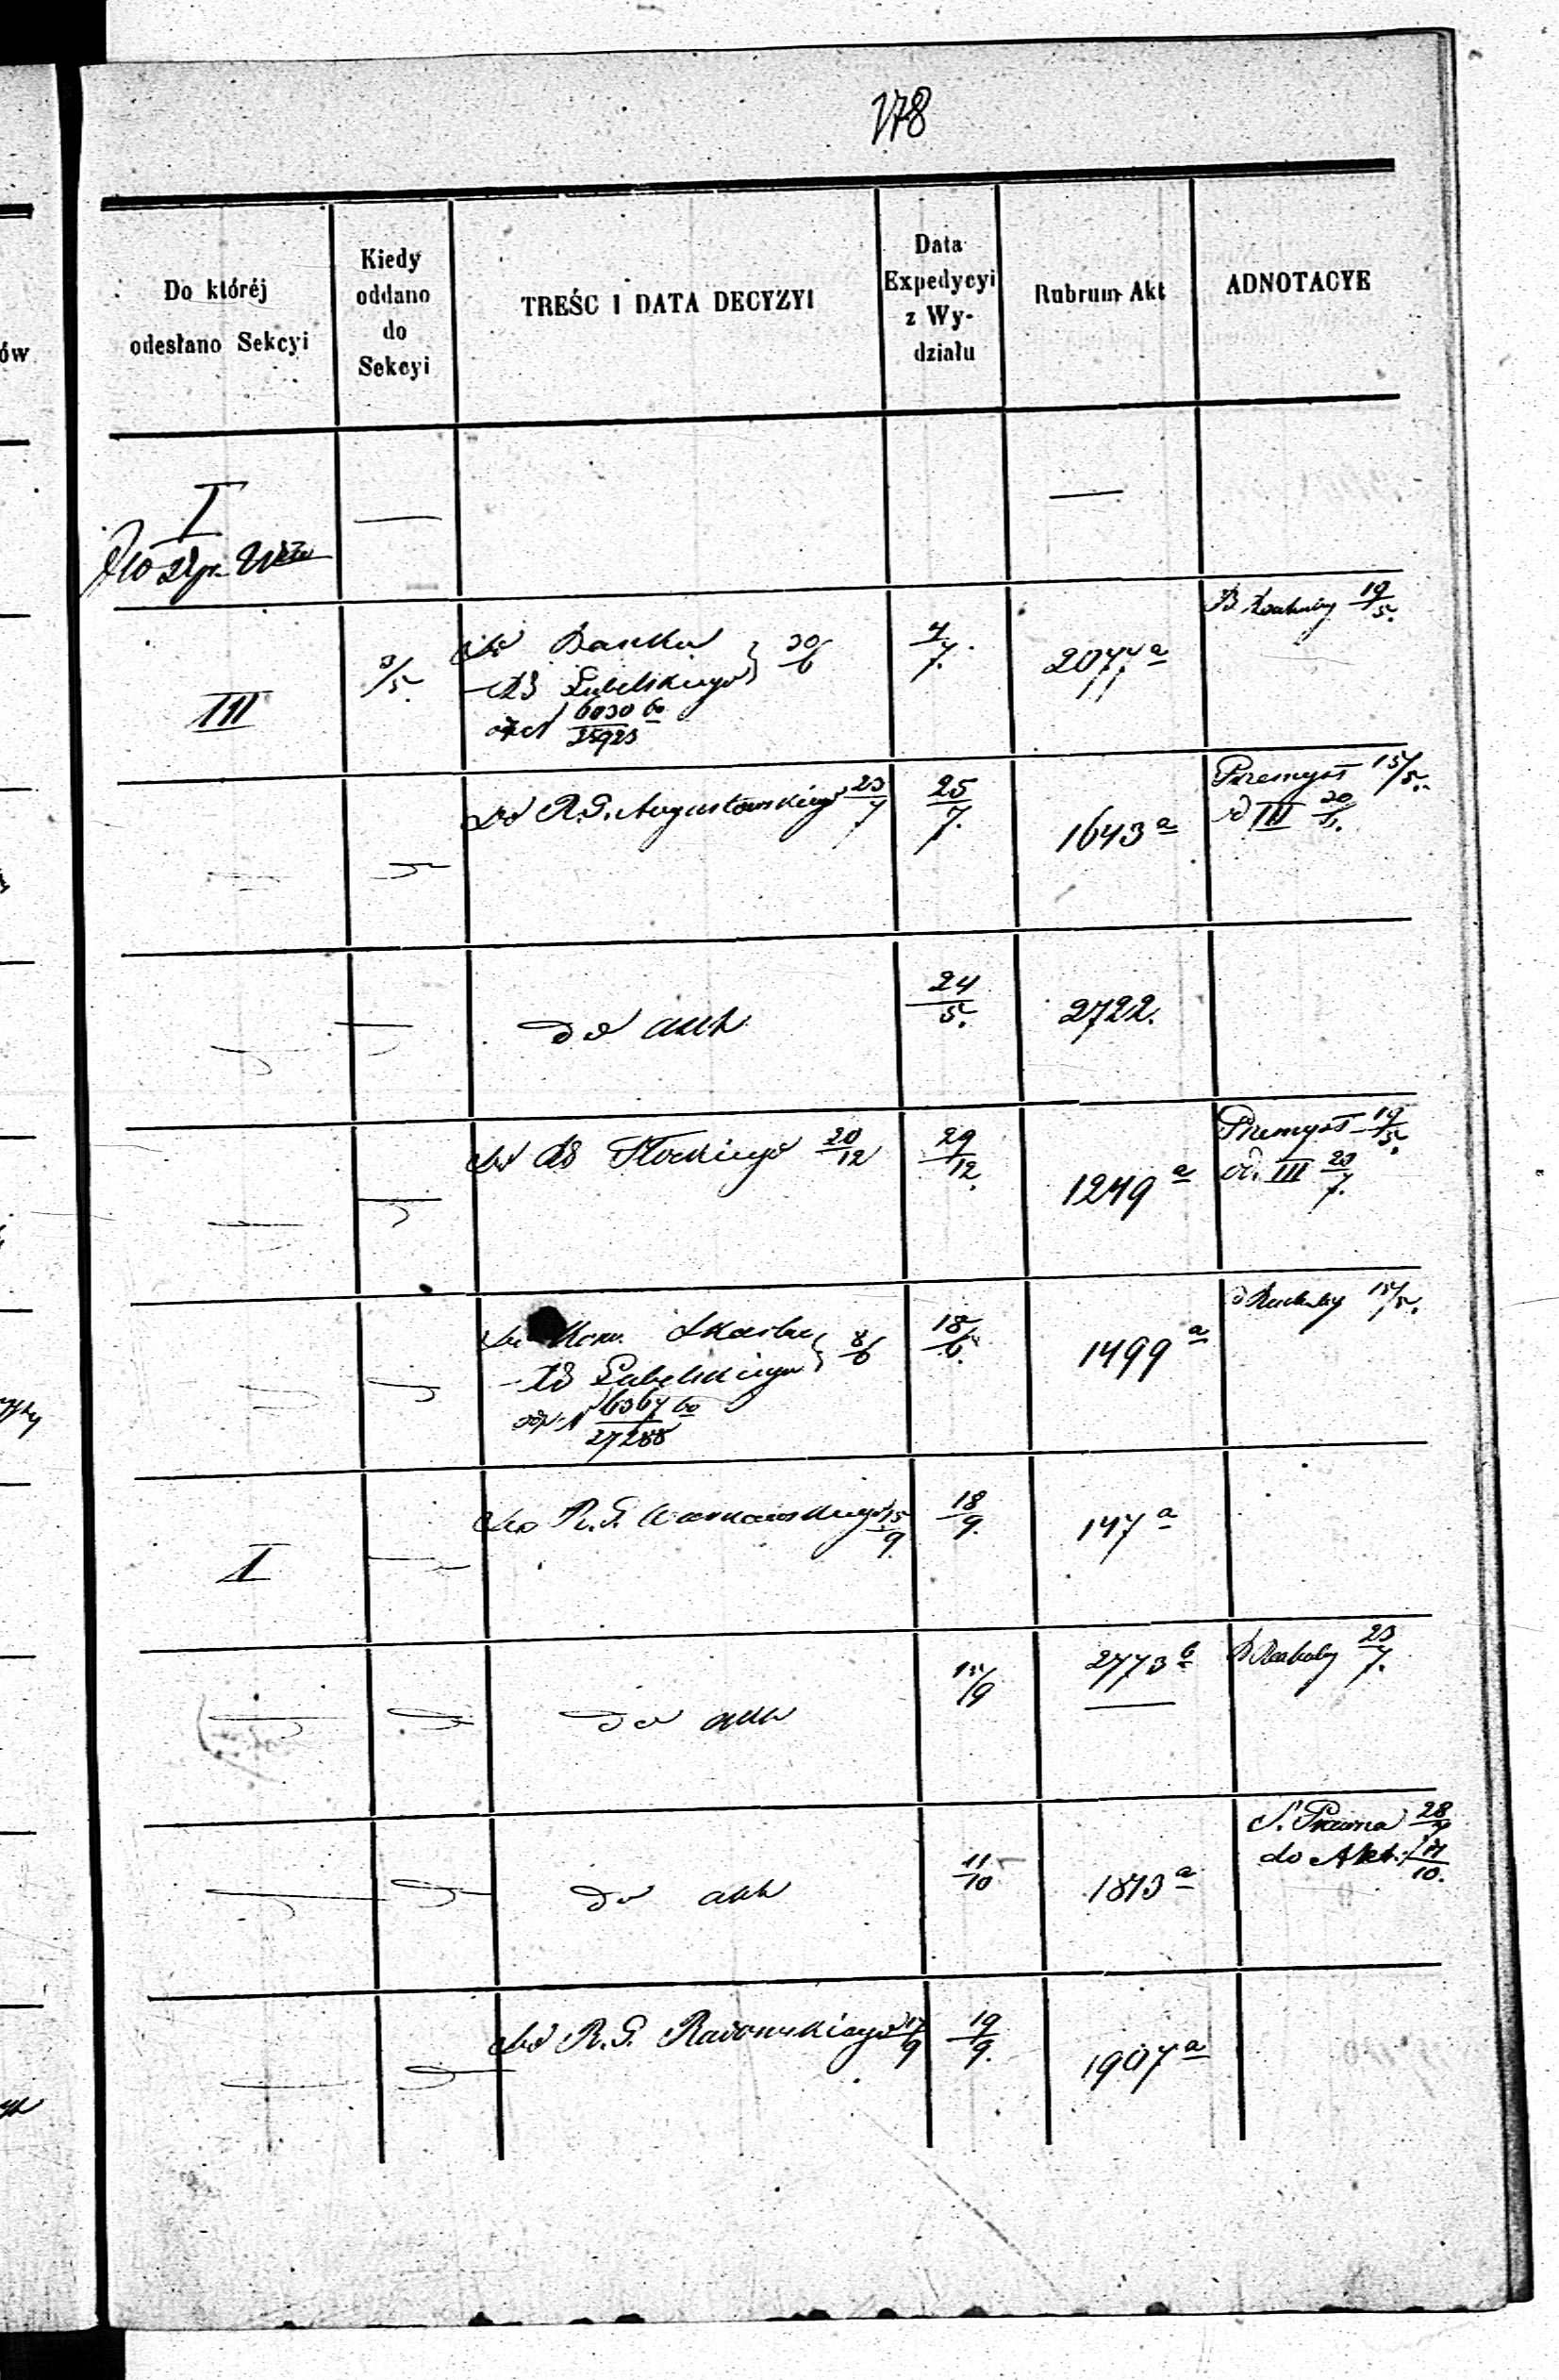 178
Do któréj
odesłano Sekcyi
Kiedy
oddano
do
Sekcyi
TREŚC I DATA DECYZYI
Data
Expedycyi
z Wy-
działu
Rubrum Akt
ADNOTACYE
I
—
—
III
3/5.
Do Banku
RG Lubelskiego } 30/6
6030 60
25923
4/7.
2077 a
19/5.
Do R. G. Augustowskiego 23/7
25/7.
1643 a
Przemysł 15/5.
od III
do akt
24/5.
2722.
Do RG Płockiego 20/12
29/12.
1249 a
Przemysł 19/5.
od. III 23/7.
Do Kom. Skarbu
RG Lubelskiego } 8/6
6367 60
27288
18/6.
1499 a
15/5.
I
Do R. G. Warszawskiego 15/9.
18/9.
147 a
do akt
15/9
2773 b
23/7.
do akt
11/10
1873 a
S. Prawna 28/7
do Akt. 11/10.
Do R. G. Radomskiego 17/9
19/9.
1907 a